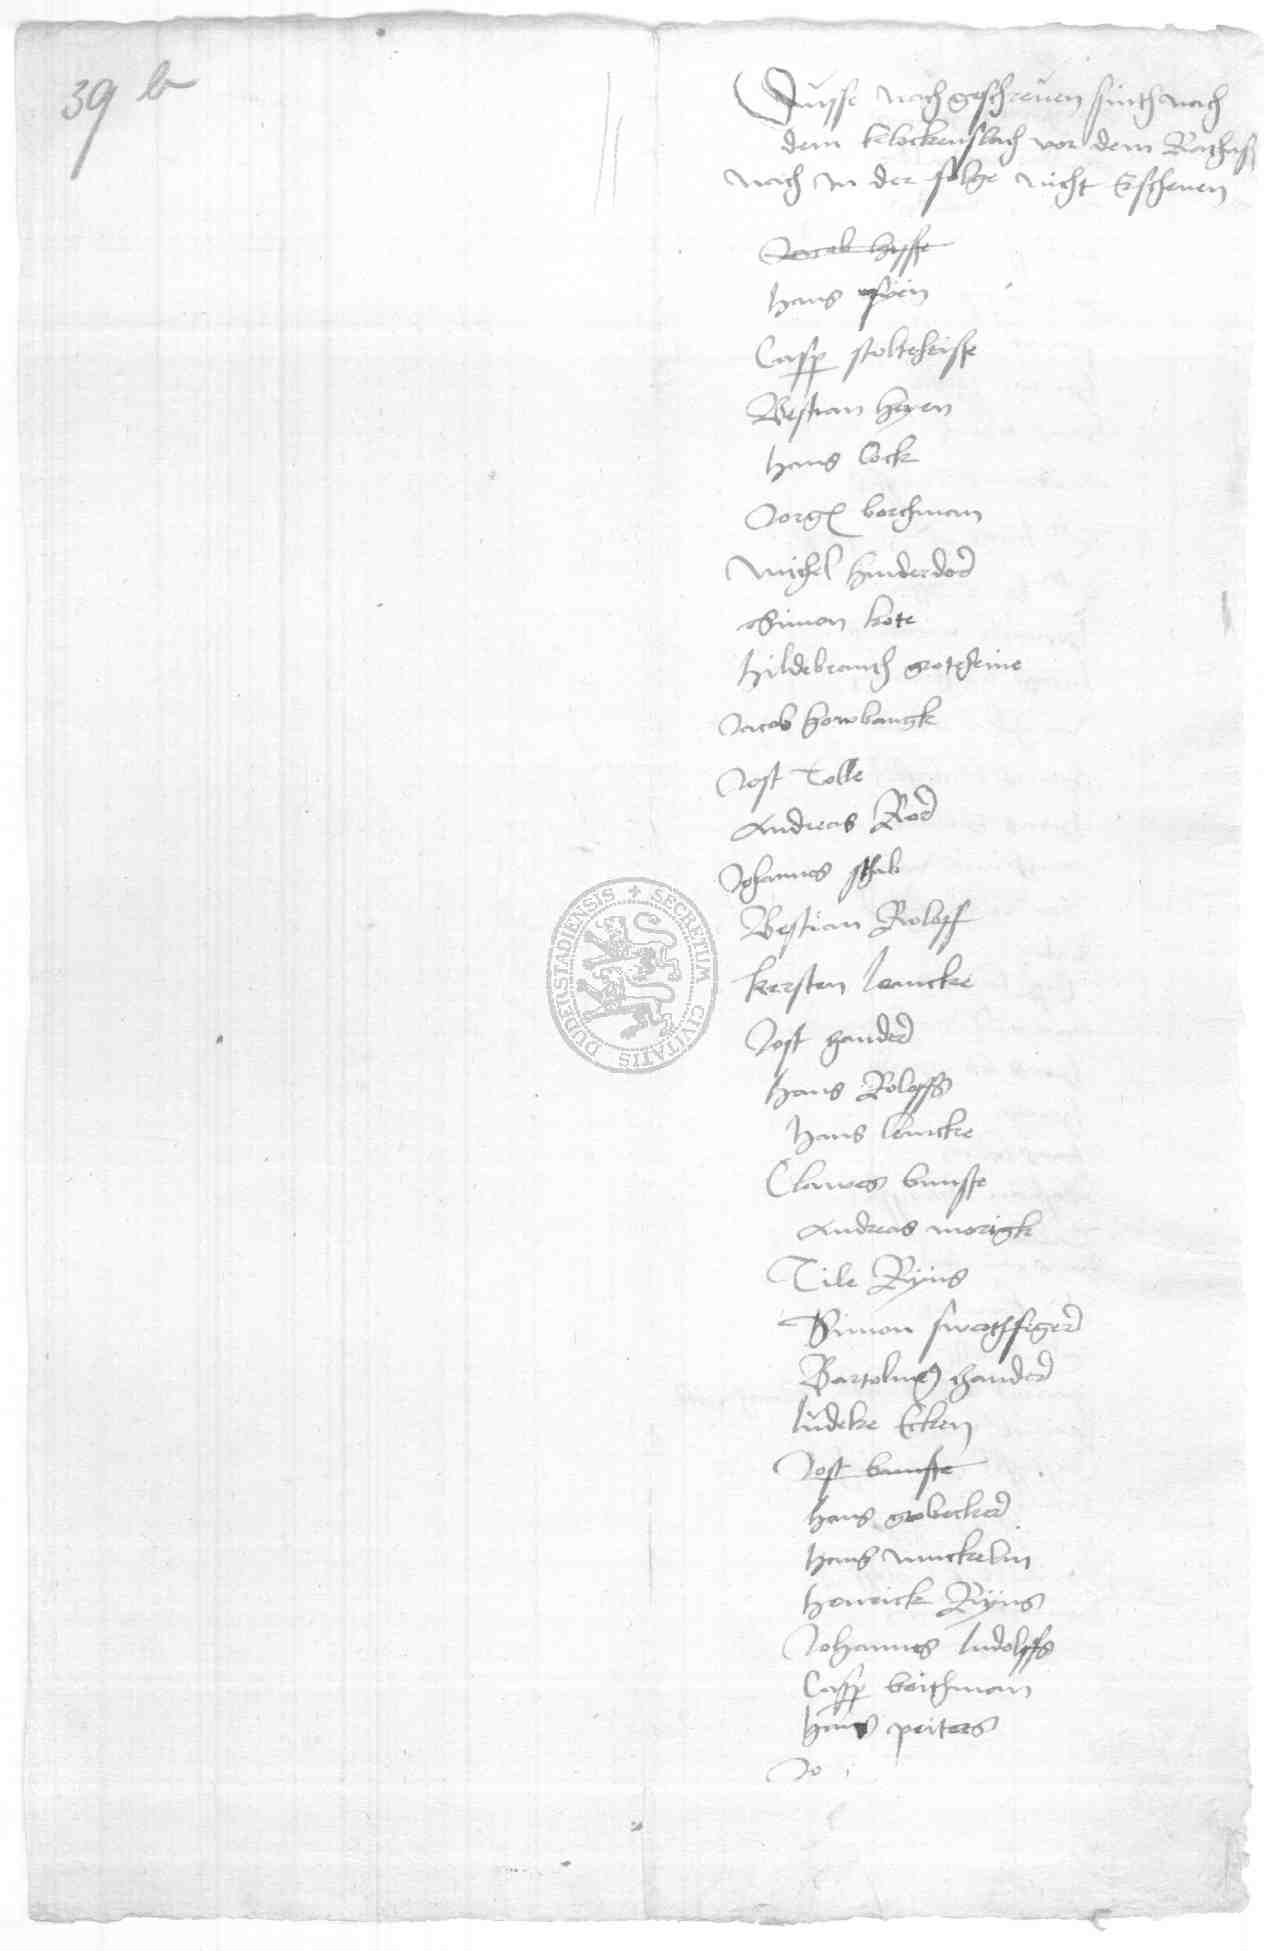 39 b
Dusse nachgeschreuen sinth nach
dem klockenslach vor dem Rathuß
nach in der folge nicht Erschenen
Jacob hysse
hans
Casper stolteheise
Bestian heyen
hans Cock
Jorge borchman
Michel hinderdor
Simon kote
hildebranth goteheine
Jacob howbangk
Jost Tolle
Andreas Roder
Johannes schab
Bestian Roloff
kersten lencke
Jost hander
hans Roloffs
hans lemcke
Clawes bunste
Andreas morigk
Tile Ryns
Simon swerthfeger
Bartolmes hander
ludeke Ecken
Jost bunste
hans grobecker
hans munckelin
henrick Ryns
Johannes ludolffs
Casper boithman
hans peiters
Jo
SECRETUM CIVITATIS DUDERSTADIENSIS